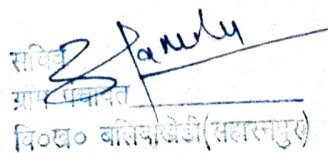 सचिव
ग्राम पंचायत
वि०ख० बलियाखेडी (सहारनपुर)